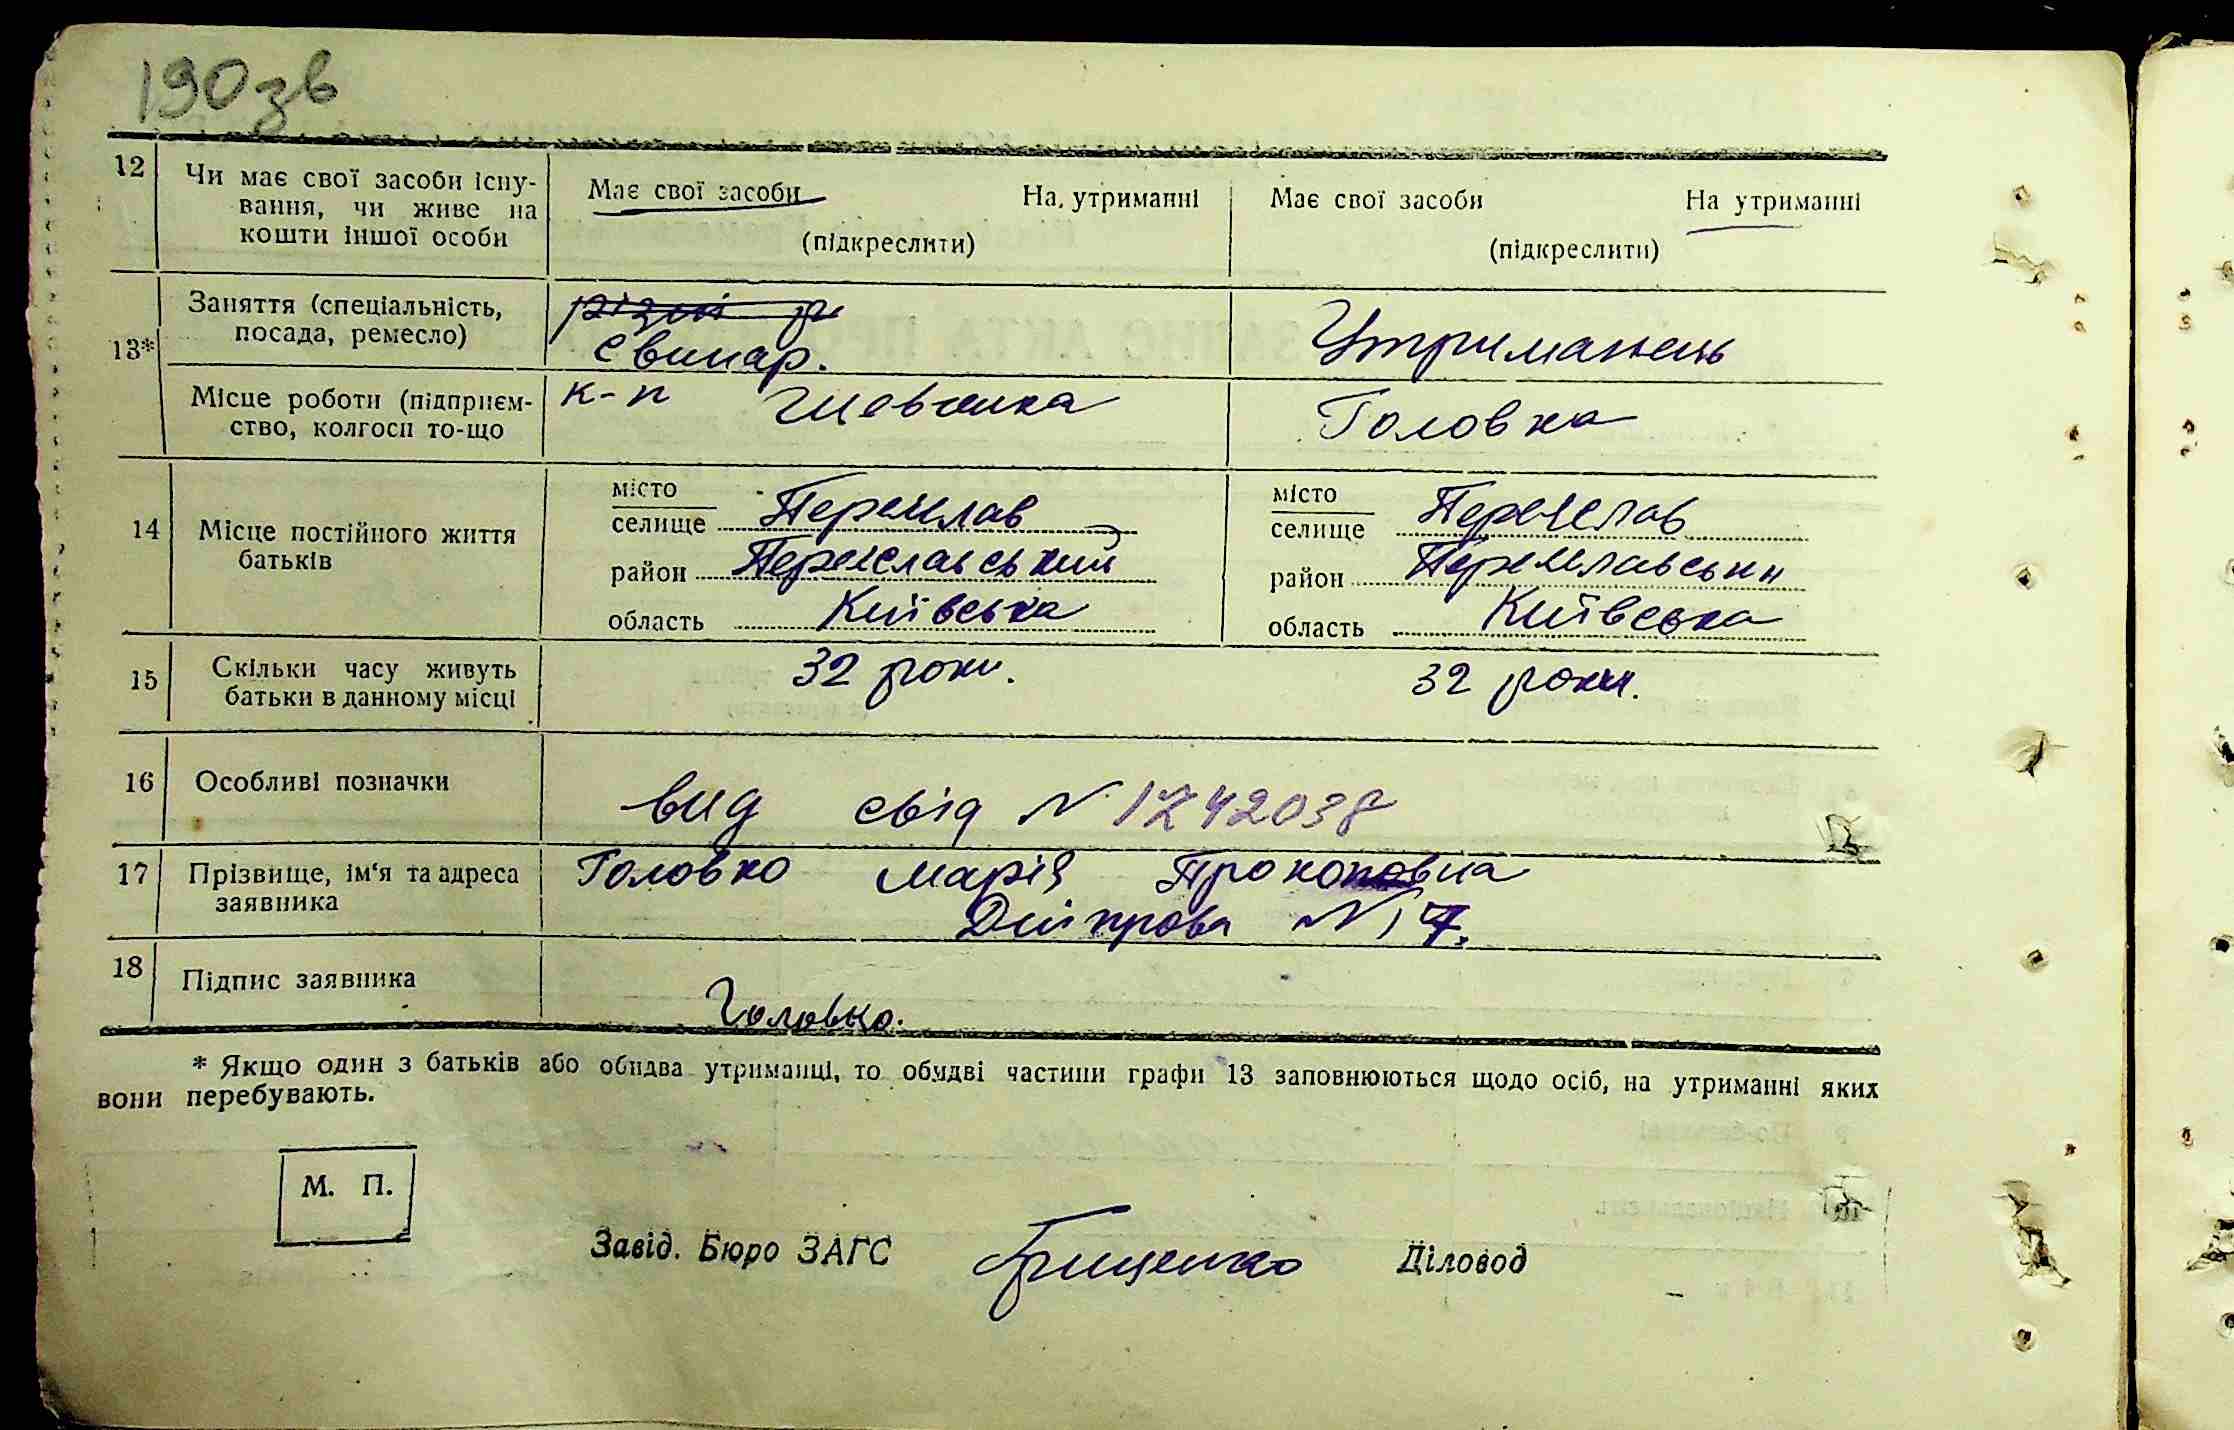 190зв
12 Чи має свої засоби існу-
вання, чи живе на
кошти іншої особи
Має свої засоби На утриманні
(підкреслити)
Має свої засоби На утриманні
(підкреслити)
13*
Заняття (спеціальність,
посада, ремесло)
різні р
свинар.
Утриманець
Місце роботи (підприєм-
ство, колгосп то-що
к-п Шевченка
Головка
14 Місце постійного життя
батьків
місто
селище Переяслав
район Переяславський
область Київська
місто
селище Переяслав
район Переяславськи
область Київська
15 Скільки часу живуть
батьки в данному місці
32 роки.
32 роки.
16 Особливі позначки
вид свід N 1242038
17 Прізвище, ім'я та адреса
заявника
Головко Марія Прокоповна
Дніпрова N 17.
18 Підпис заявника
Головко.
* Якщо один з батьків або обидва утриманці, то обидві частини графи 13 заповнюються щодо осіб, на утриманні яких
вони перебувають.
М. П.
Завід. Бюро ЗАГС Грищенко Діловод